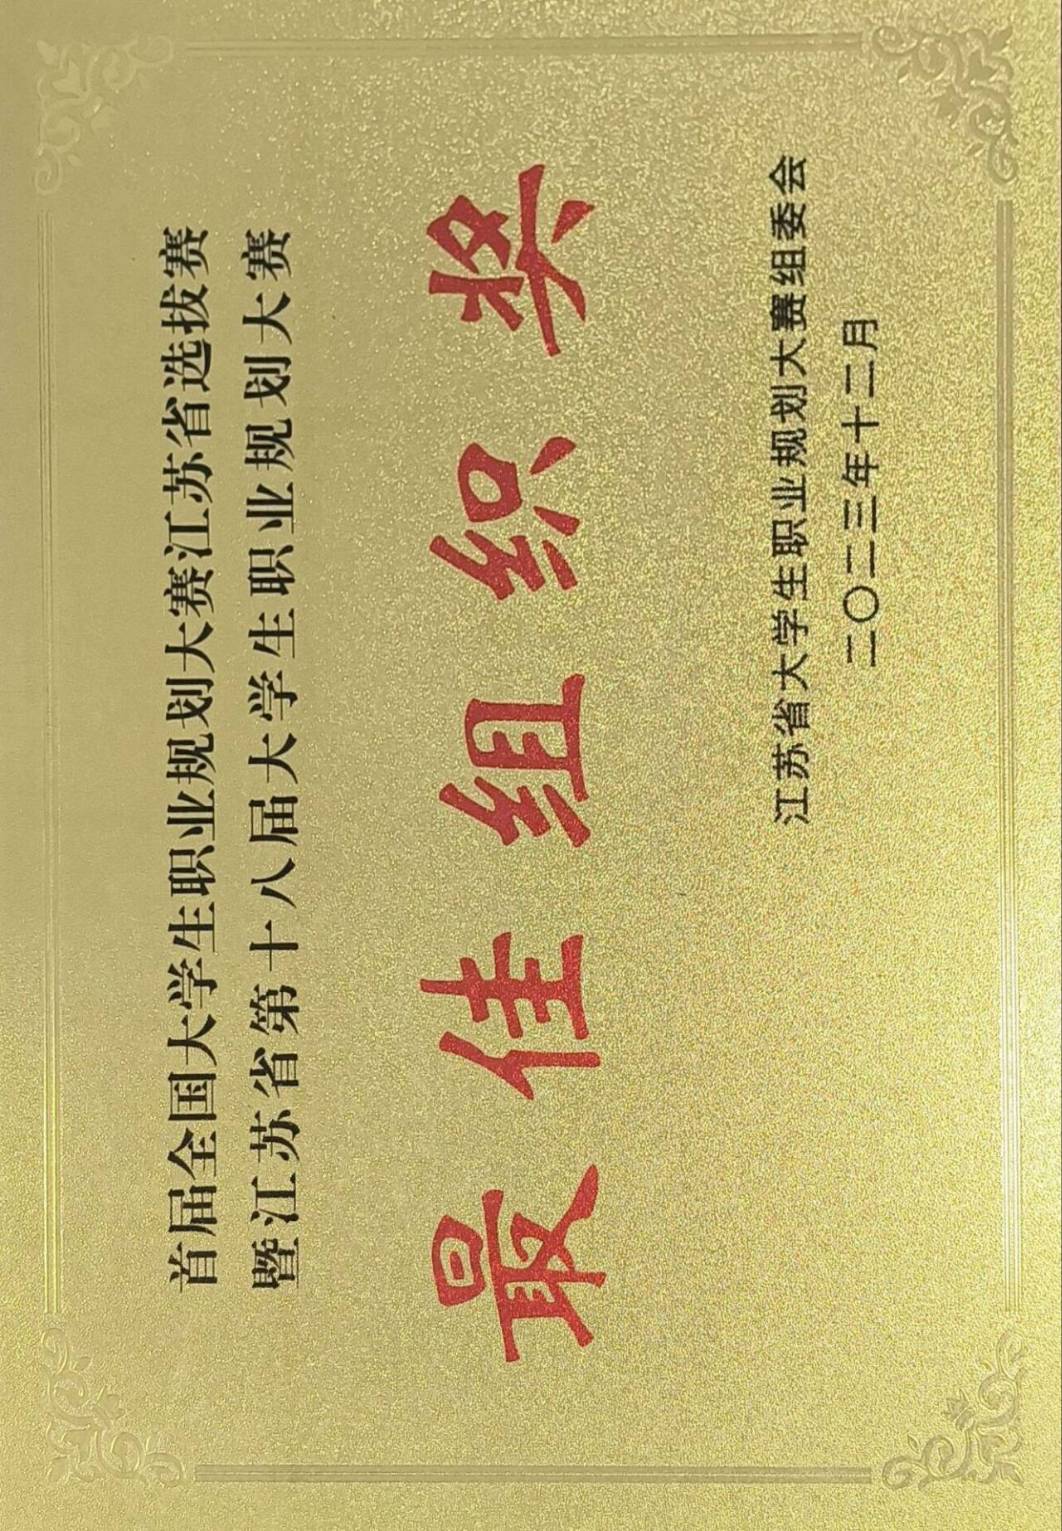 首届全国大学生职业规划大赛江苏省选拔赛
暨江苏省第十八届大学生职业规划大赛
最佳组织奖
江苏省大学生职业规划大赛组委会
二〇二三年十二月